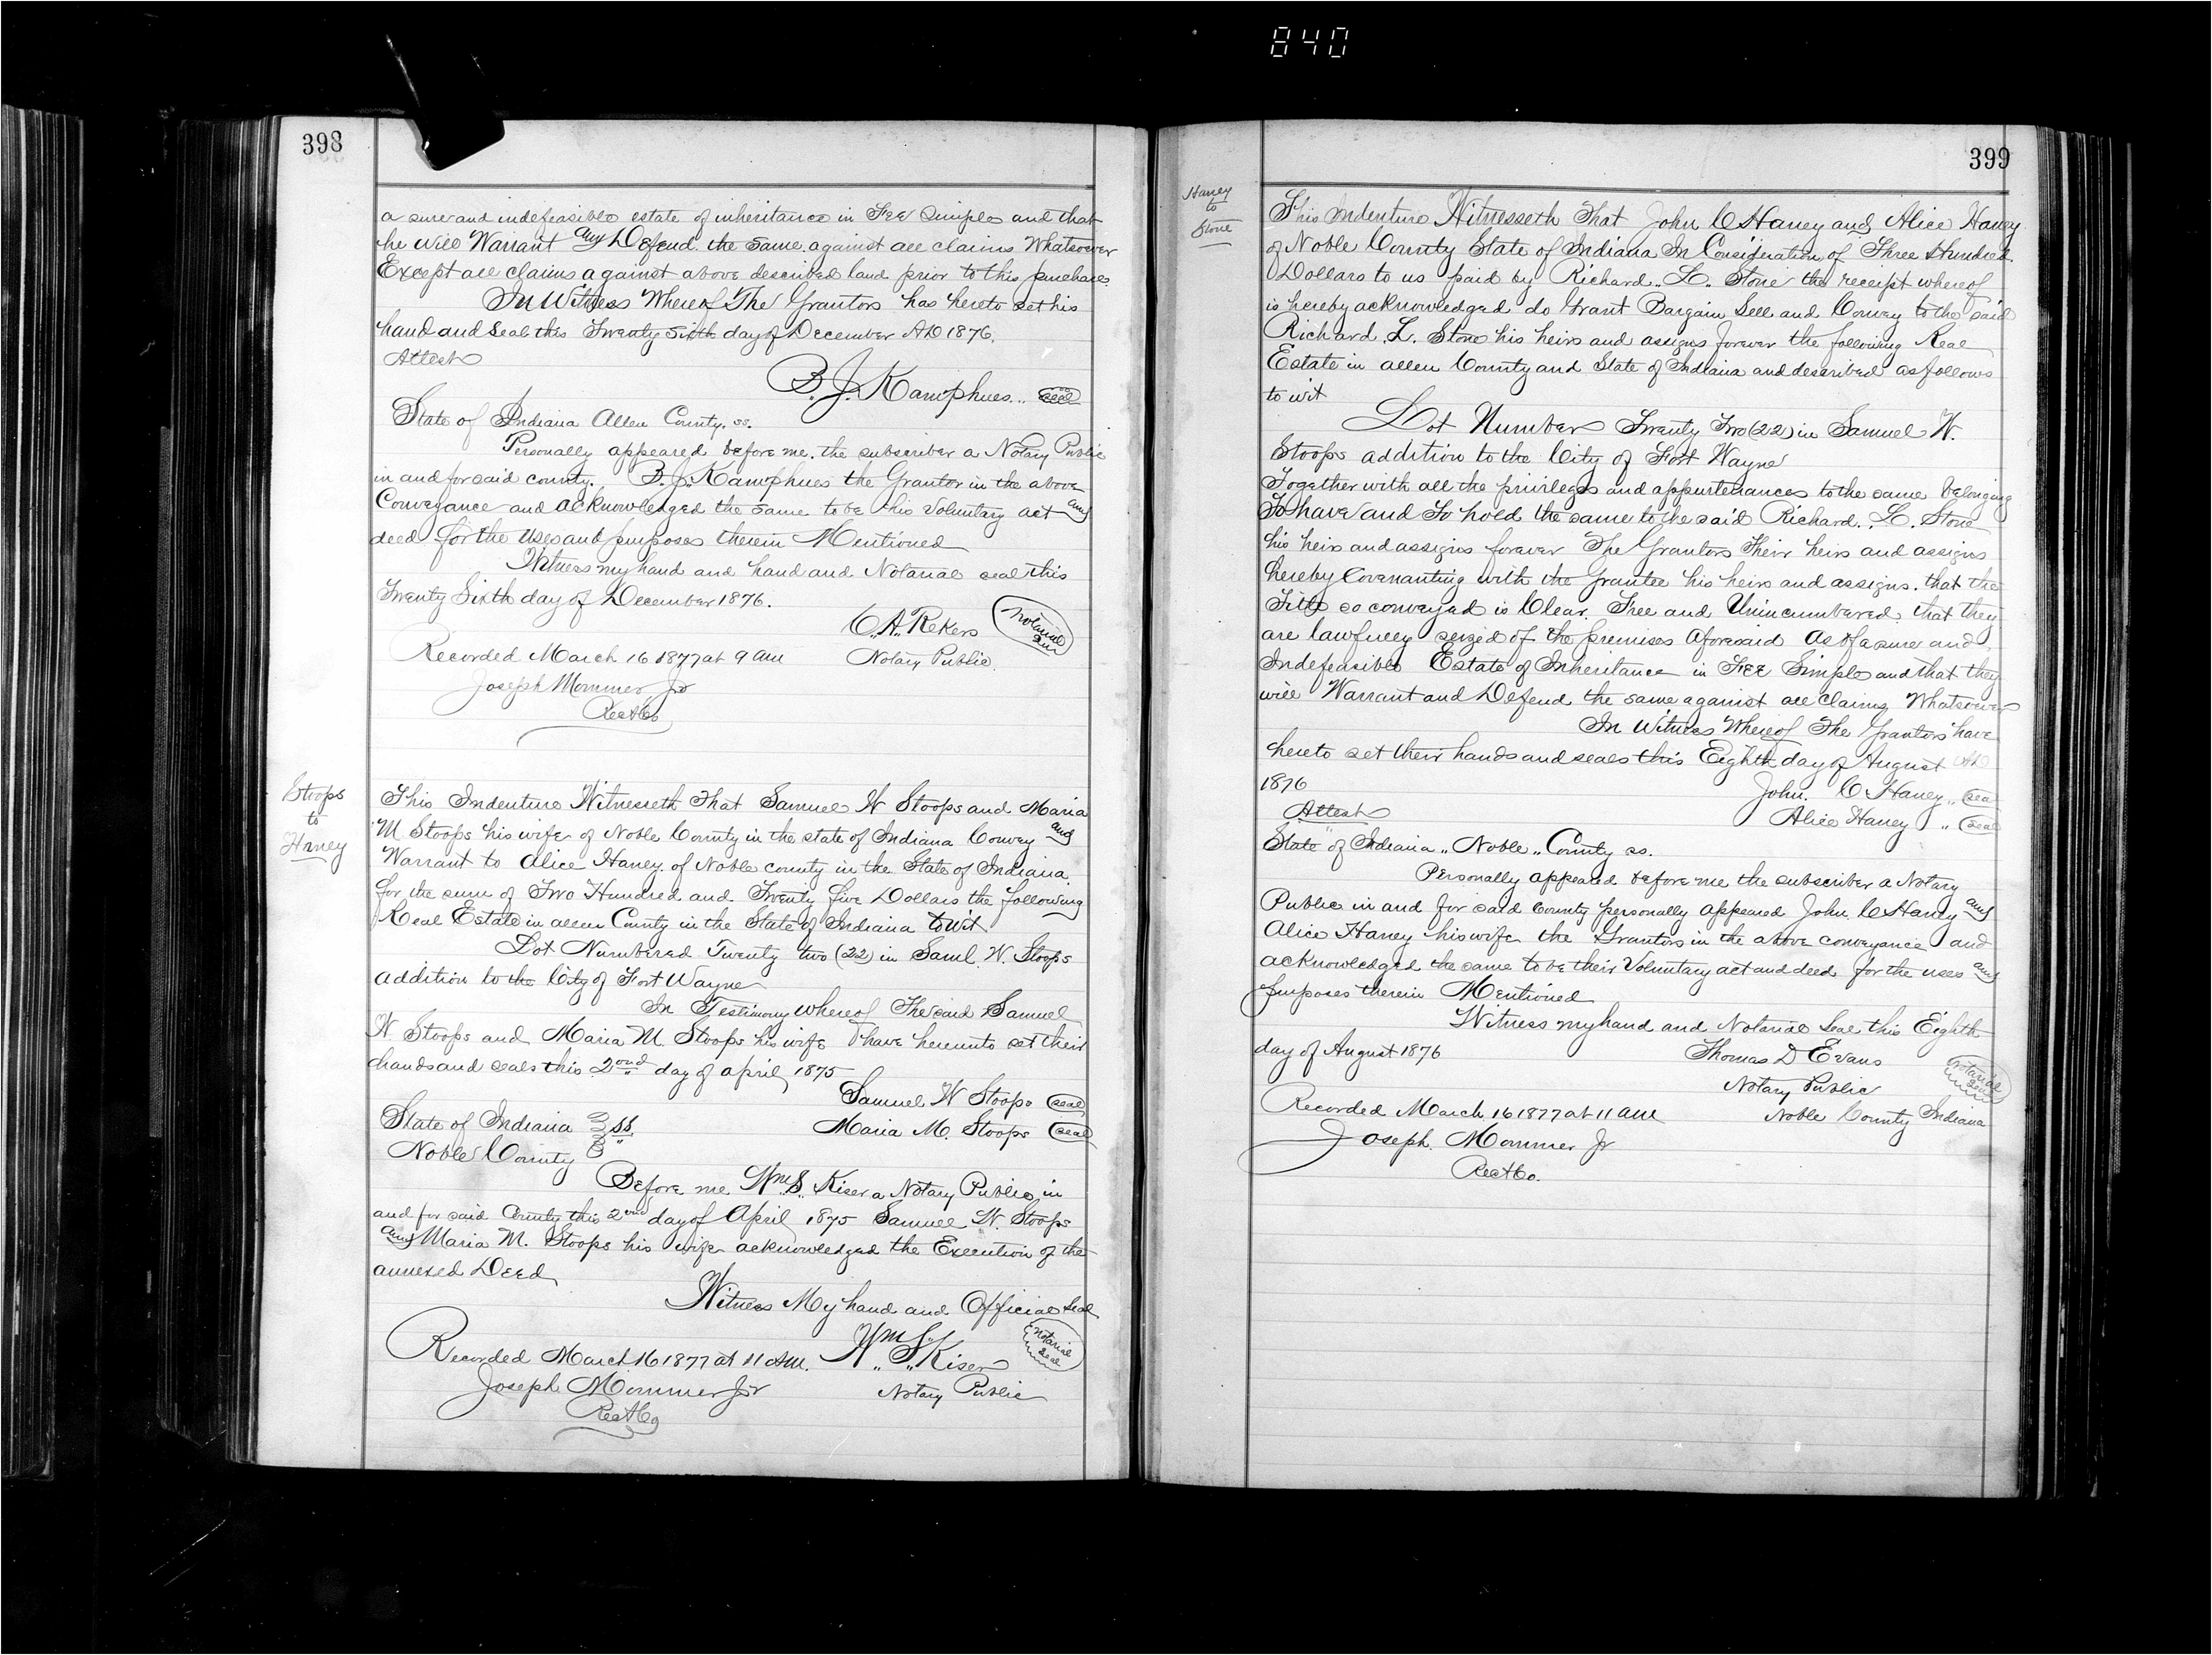 840
398
a sure and indefeasible estate of inheritance in Fee Simple and that
he will Warrant and Defend the same against all claims Whatsoever
Except all claims against above described land prior to this purchase
In Witness Whereof The Grantors has hereto set his
hand and Seal this Twenty Sixth day of December AD 1876.
Attest
B. J. Kamphues.. Seal
State of Indiana Allen County. ss.
Personally appeared before me. the subscriber a Notary Public
in and for said county. B. J. Kamphues the Grantor in the above
Conveyance and acknowledged the same to be his Voluntary act and
deed for the uses and purposes therein Mentioned
Witness my hand and hand and Notarial seal this
Twenty Sixth day of December 1876.
C. A. Rekers Notarial Seal
Recorded March 16 1877 at 9 am Notary Public.
Joseph Mommer Jr
RecACo
Stoops
to
Haney
This Indenture Witnesseth That Samuel W Stoops and Maria
M Stoops his wife of Noble County in the state of Indiana Convey and
Warrant to Alice Haney. of Noble county in the State of Indiana
for the sum of Two Hundred and Twenty five Dollars the following
Real Estate in allen County in the State of Indiana to wit
Lot Numbered Twenty two (22) in Saml. W. Stoops
addition to the City of Fort Wayne
In Testimony Whereof The said Samuel
W Stoops and Maria M. Stoops his wife have hereunto set their
hands and seals this 2nd day of april 1875
Samuel W Stoops seal
State of Indiana } ss
Maria M. Stoops seal
Noble County }
Before me Wm S. Kiser a Notary Public in
and for said County this 2nd day of April 1875 Samuel W. Stoops
and Maria M. Stoops his wife acknowledged the Execution of the
annexed Deed
Witness My hand and Official Seal
Recorded March 16 1877 at 11 AM. Wm S. Kiser Notarial Seal
Joseph Mommer Jr Notary Public
RecACo
399
Haney
to
Stone
This Indenture Witnesseth That John C Haney and Alice Haney
of Noble County State of Indiana In Consideration of Three Hundred
Dollars to us paid by Richard.. L.. Stone the receipt whereof
is hereby acknowledged do Grant Bargain Sell and Convey to the said
Richard. L. Stone his heirs and assigns forever the following Real
Estate in allen County and State of Indiana and described as follows
to wit
Lot Number Twenty Two (22) in Samuel W.
Stoops addition to the City of Fort Wayne
Together with all the privileges and appurtenances to the same belonging
To have and To hold the same to the said Richard.. L. Stone
his heirs and assigns forever The Grantors Their heirs and assigns
hereby Covenanting with the Grantee his heirs and assigns. that the
Title so conveyed is Clear. Free and Unincumbered, that they
are lawfully seized of the premises aforesaid as of a sure and
Indefeasible Estate of Inheritance in Fee Simple and that they
will Warrant and Defend the same against all claims Whatsoever
In Witness Whereof The Grantors have
hereto set their hands and seals this Eighth day of August AD
1876
John. C Haney.. seal
Attest
Alice Haney .. seal
State of Indiana .. Noble .. County ss.
Personally appeared before me the subscriber a Notary
Public in and for said County personally appeared John C Haney and
Alice Haney his wife the Grantors in the above conveyance and
acknowledged the same to be their Voluntary act and deed for the uses and
purposes therein Mentioned
Witness my hand and Notarial Seal this Eighth
day of August 1876 Thomas D Evans
Notary Public Notarial Seal
Recorded March 16 1877 at 11 AM Noble County Indiana
Joseph. Mommer Jr
RecACo.